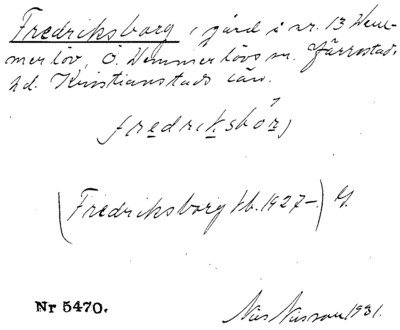 Fredriksborg, gård i nr. 13 Wem-
merlöv, Ö. Wemmerlövs sn. Järrestads
hd. Kristianstads län.
fredriksbórj
(Fredriksborg kb. 1927–) G.
Nr 5470.
1931.